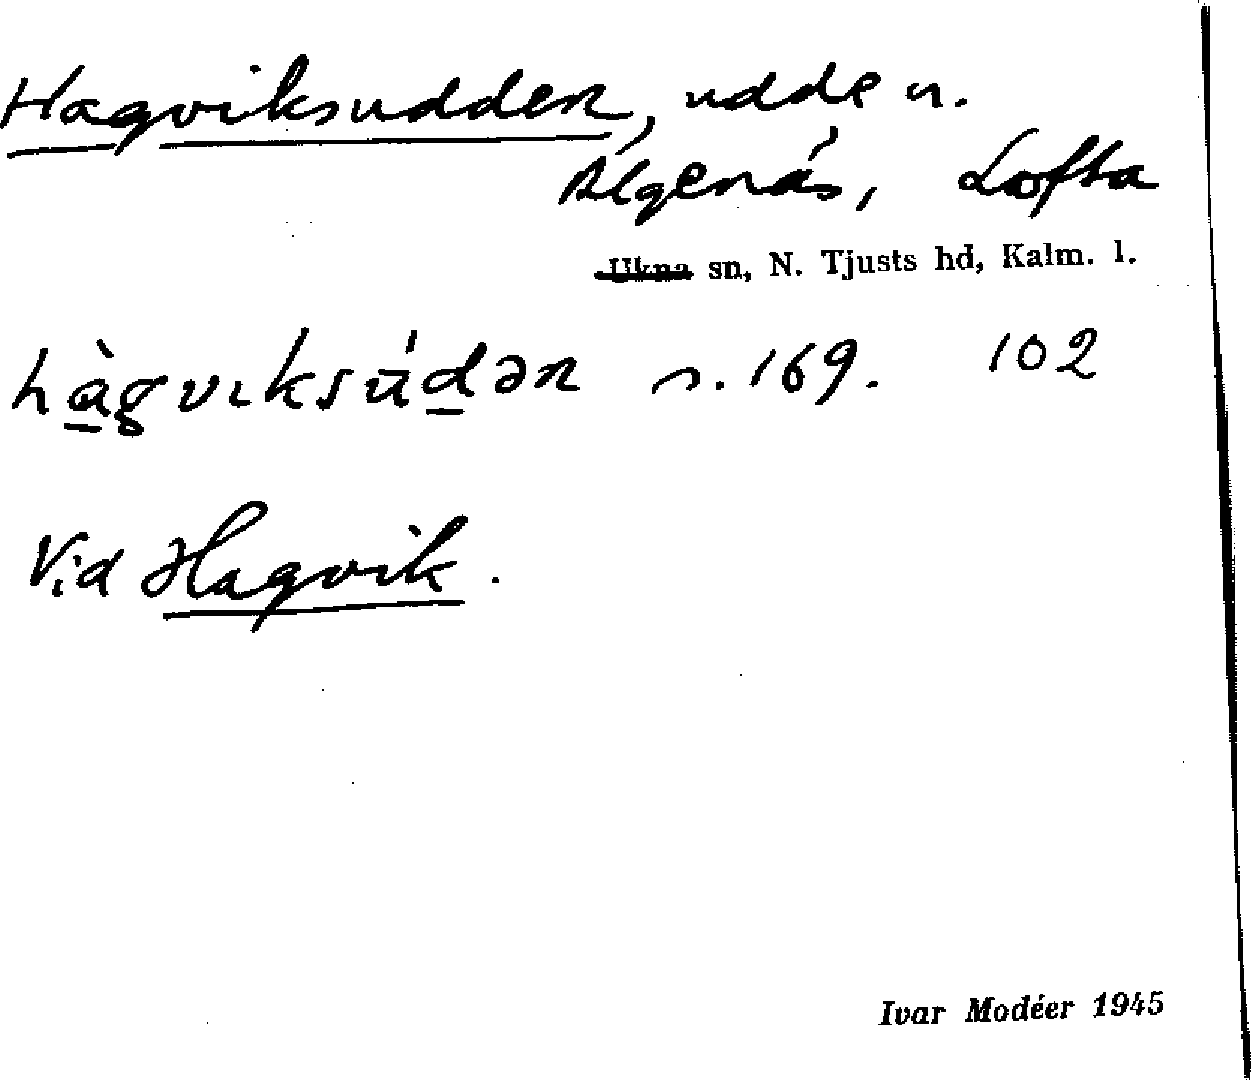 Hagviksudden, udde n.
Älgenäs, Lofta
Ukna sn, N. Tjusts hd, Kalm. l.
hàgvıksúdən n. 169. 102
Vid Hagvik.
Ivar Modéer 1945